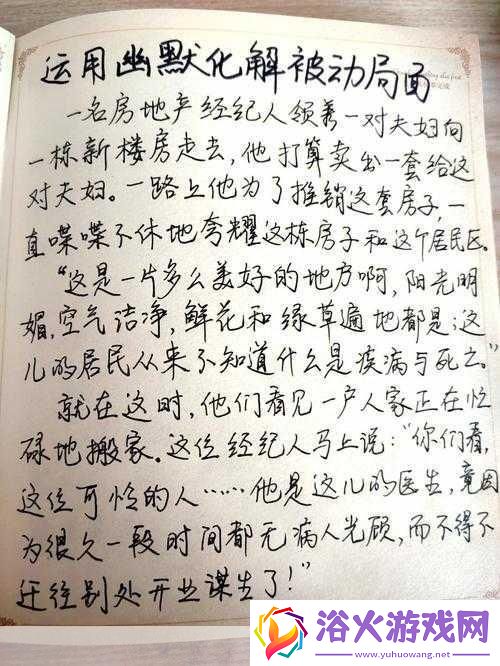 运用幽默化解被动局面
一名房地产经纪人领着一对夫妇向
一栋新楼房走去,他打算卖出一套给这
对夫妇。一路上他为了推销这套房子,一
直喋喋不休地夸耀这栋房子和这个居民区。
“这是一片多么美好的地方啊,阳光明
媚,空气洁净,鲜花和绿草遍地都是;这
儿的居民从来不知道什么是疾病与死亡。”
就在这时,他们看见一户人家正在忙
碌地搬家。这位经纪人马上说:“你们看,
这位可怜的人……他是这儿的医生,竟因
为很久一段时间都无病人光顾,而不得不
迁往别处开业谋生了!”
浴火游戏网
www.yuhuowang.net